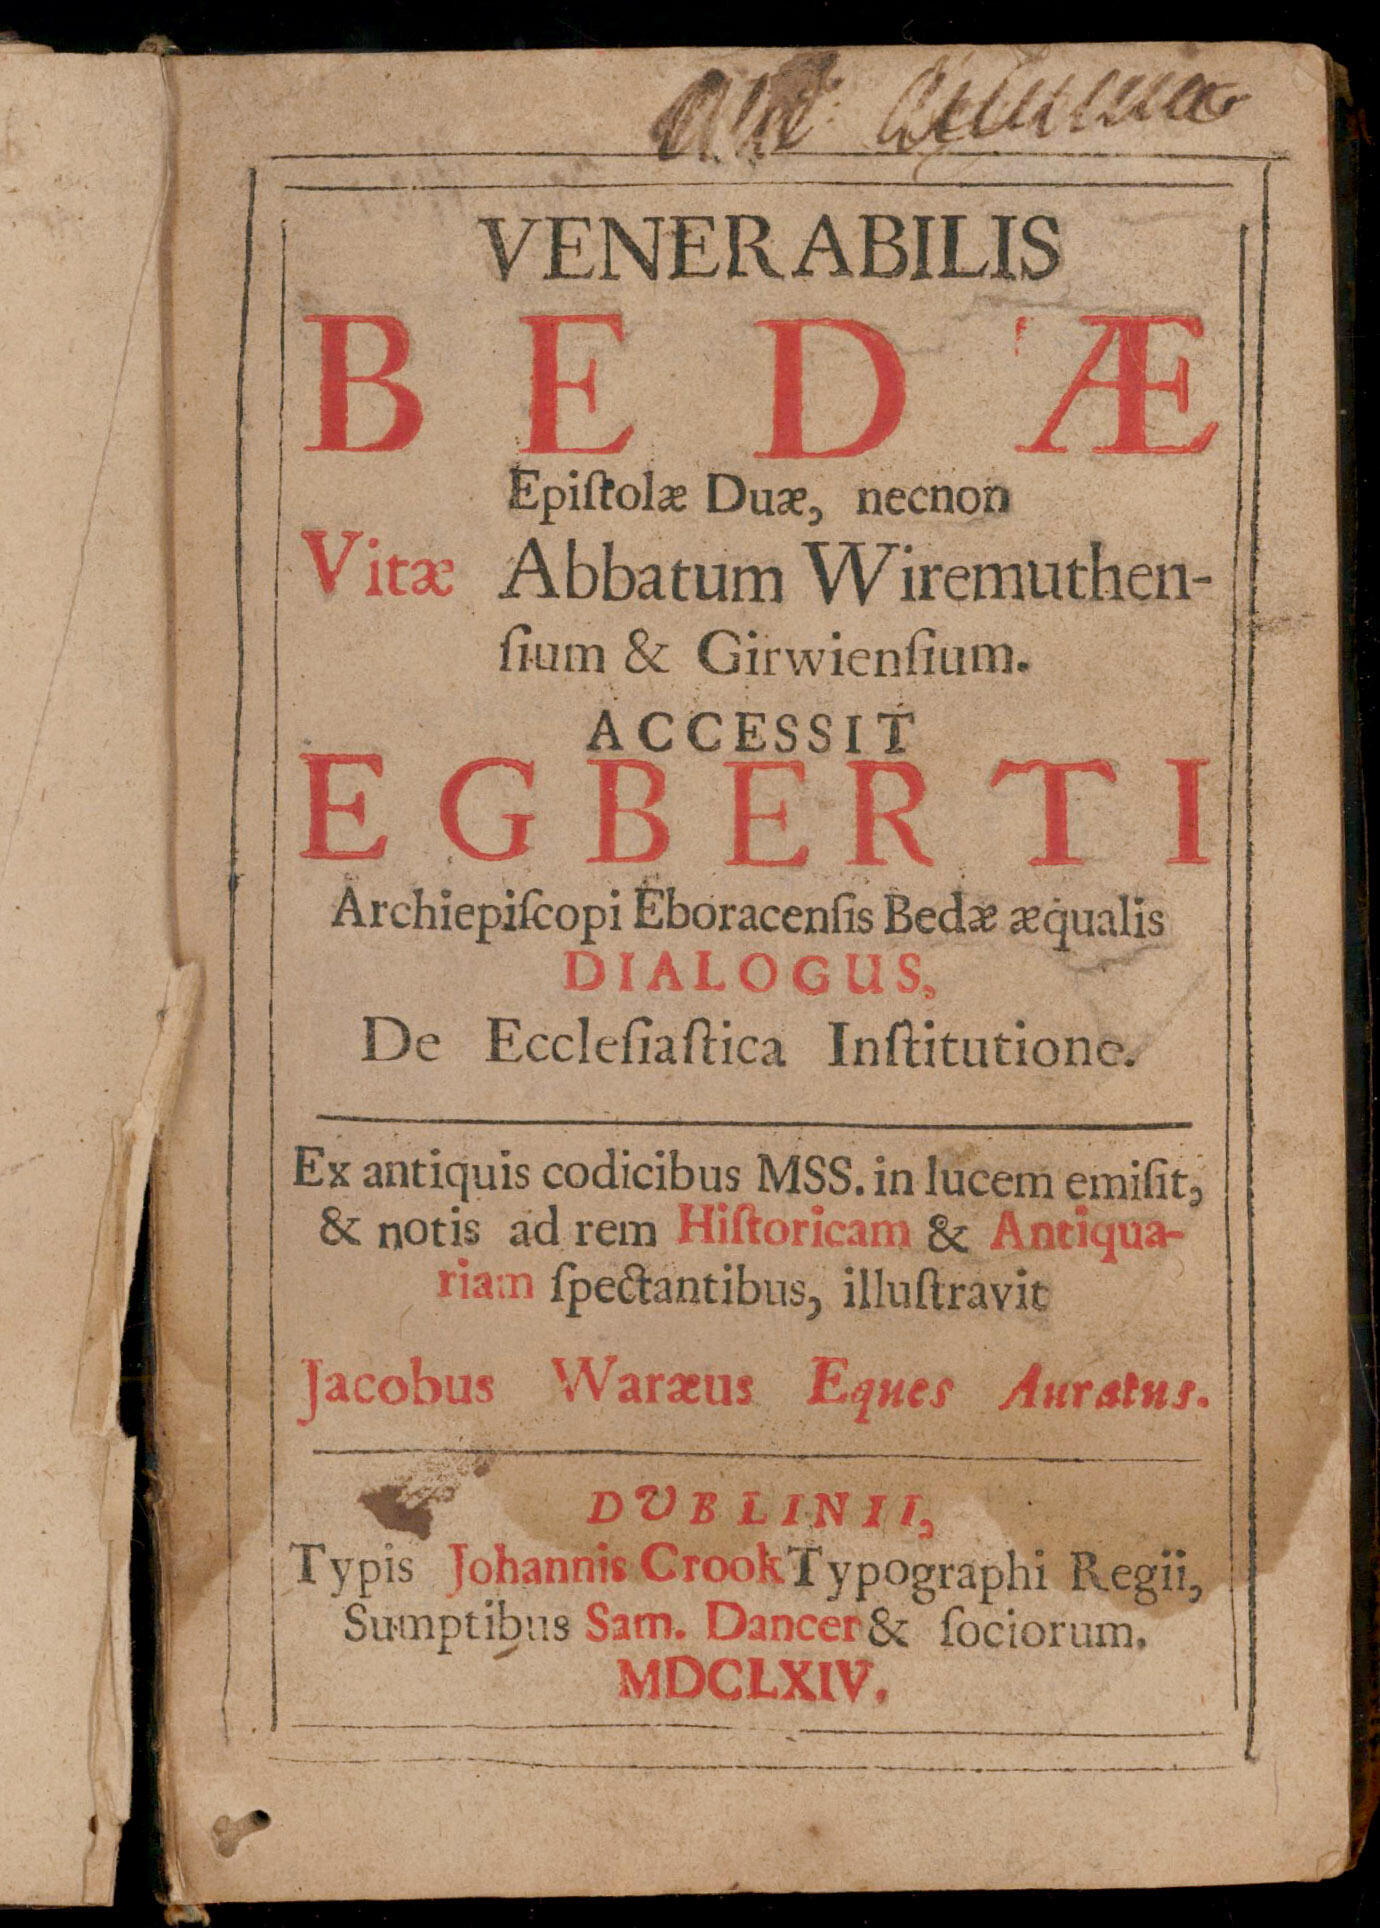 VENERABILIS
BEDÆ
Epiſtolæ Duæ, necnon
Vitæ Abbatum Wiremuthen-
ſium & Girwienſium.
ACCESSIT
EGBERTI
Archiepiſcopi Eboracenſis Bedæ æqualis
DIALOGUS,
De Eccleſiaſtica Inſtitutione.
Ex antiquis codicibus MSS. in lucem emiſit,
& notis ad rem Hiſtoricam & Antiqua-
riam ſpectantibus, illuſtravit
Jacobus Waræus Eques Auratus.
DUBLINII,
Typis Johannis Crook Typographi Regii,
Sumptibus Sam. Dancer & ſociorum.
MDCLXIV.